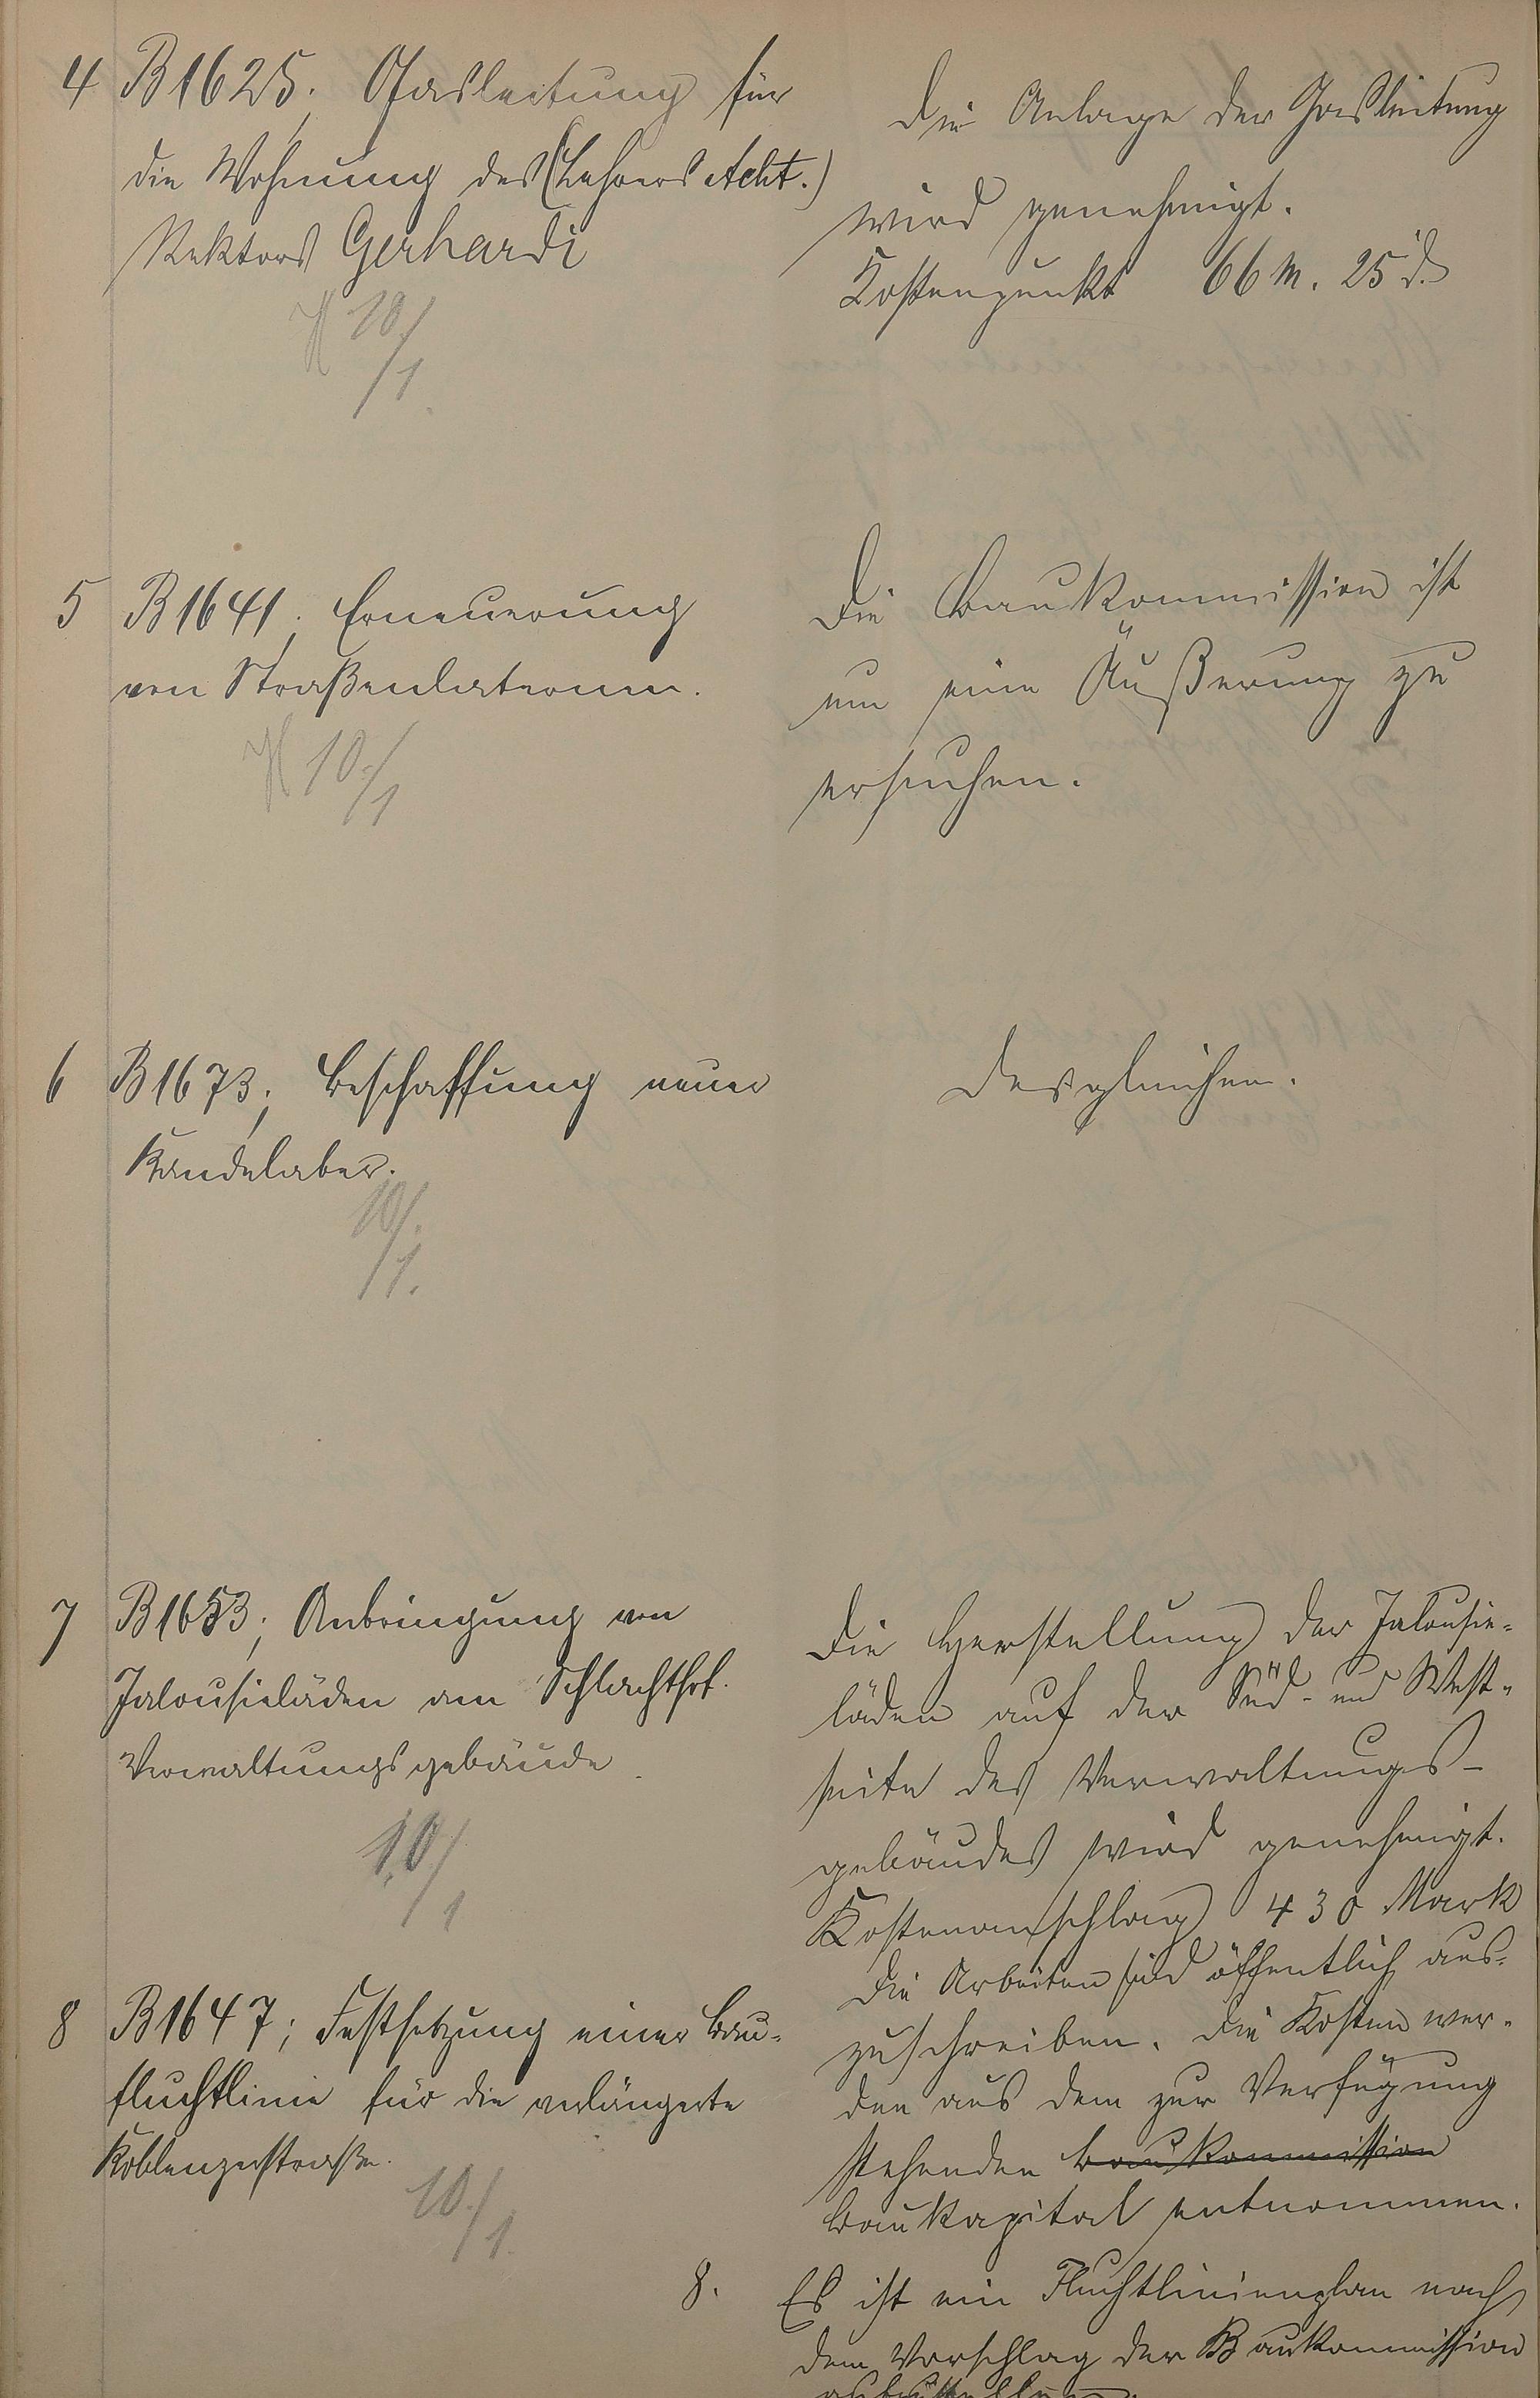 4 B 1625; Gasleitung für
die Wohnung des (Lehrers Acht.)
Rektors Gerhardi
H 10./1.
Die Anlage der Gasleitung
wird genehmigt.
Kostenpunkt 66 M. 25 d.
5 B 1641; Erneuerung
von Straßenlaternen.
H 10./1
Die Baukommission ist
um eine Äußerung zu
ersuchen.
6 B 1673; Beschaffung neuer
Kandelaber.
10/.1.
Desgleichen.
7 B 1653; Anbringung von
Jalousieläden am Schlachthof-
Verwaltungsgebäude.
10/1
Die Herstellung der Jalousie-
läden auf der Süd- und West-
seite des Verwaltungs-
gebäudes wird genehmigt.
Kostenanschlag 430 Mark
Die Arbeiten sind öffentlich aus-
zuschreiben. Die Kosten wer-
den aus dem zur Verfügung
stehenden Baukommission
Baukapital entnommen.
8 B 1647; Festsetzung einer Bau-
fluchtlinie für die verlängerte
Koblenzerstraße.
10./1.
8. Es ist ein Fluchtlinienplan nach
dem Vorschlag der Baukommission